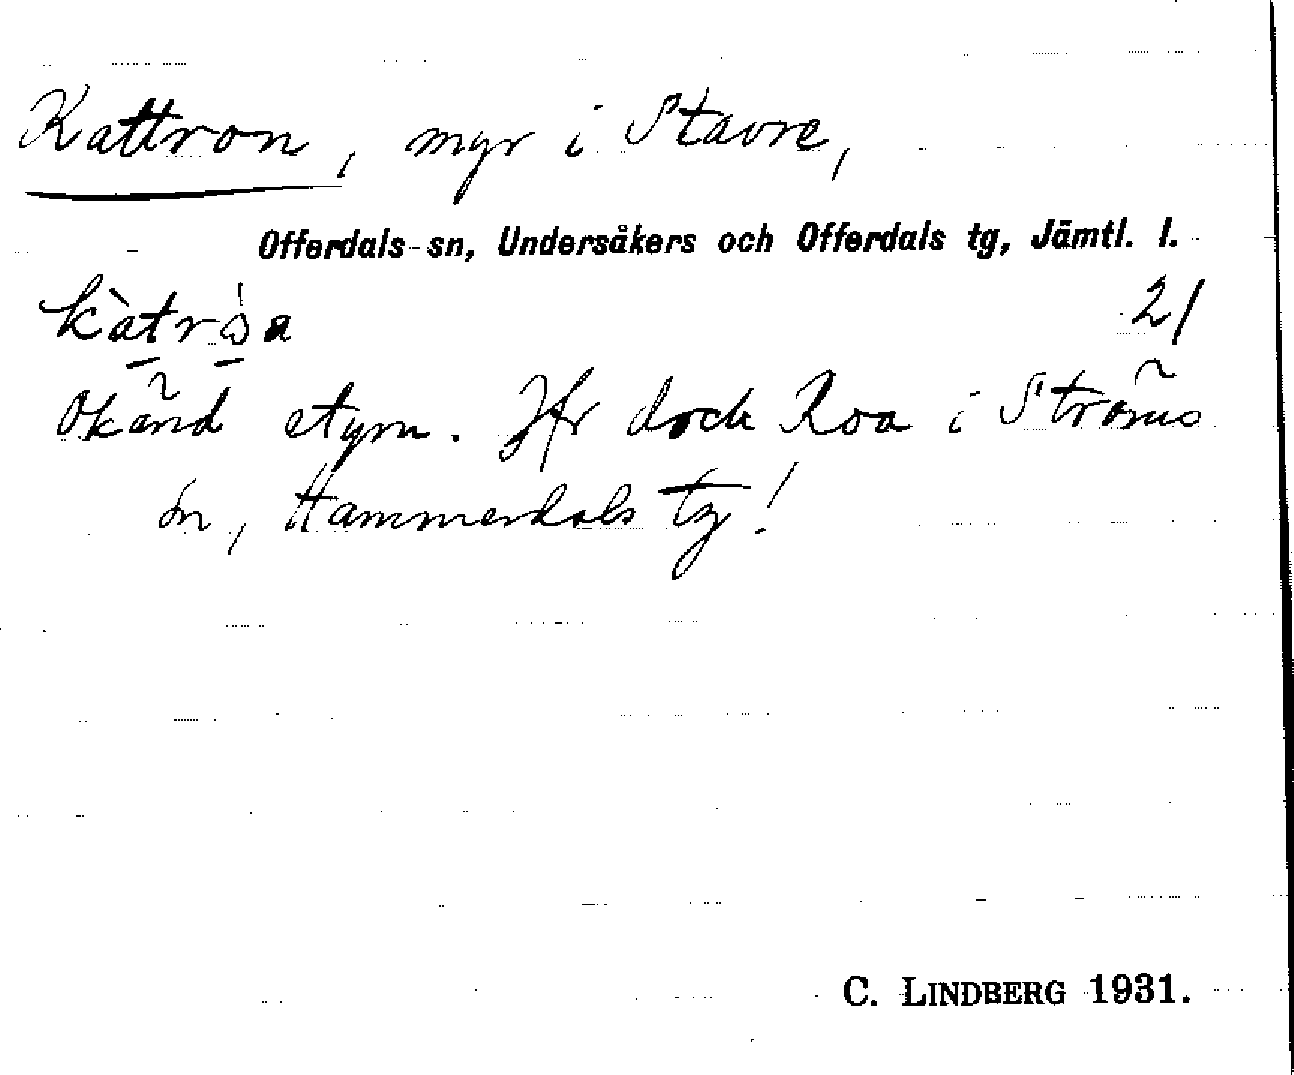 Kattron, myr i Stavre,
Offerdals sn, Undersåkers och Offerdals tg, Jämtl. l.
21
Okänd etym. Jfr dock Roa i Ströms
sn, Hammerdals tg!
C. LINDBERG 1931.